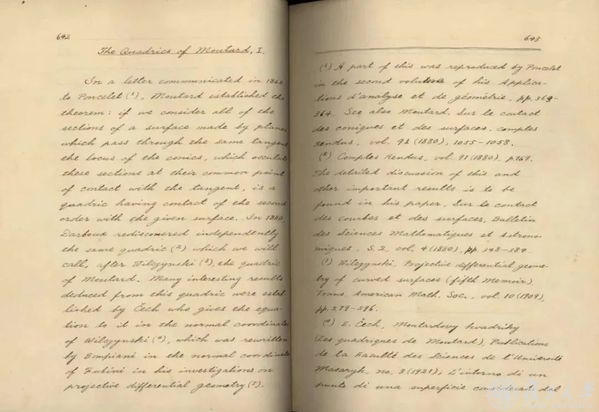 642
The Quadrics of Moutard, I.
In a letter communicated in
to Poncelet (¹), Moutard established the
theorem: if we consider all of the
sections of a surface made by planes
which pass through the same tangent
the locus of the conics, which osculate
these sections at their common point
of contact with the tangent, is a
quadric having contact of the second
order with the given surface. In 1880,
Darboux rediscovered independently
the same quadric (²) which we will
call, after Wilczynski (³), the quadric
of Moutard. Many interesting results
deduced from this quadric were estab-
lished by Čech who gives the equa-
tion to it in the normal coordinates
of Wilczynski (⁴), which was rewritten
by Bompiani in the normal coordinates
of Fubini in his investigations on
projective differential geometry (⁵).
643
(¹) A part of this was reproduced by Poncelet
in the second volume of his Applica-
tions d'analyse et de géométrie, pp. 363-
364. See also Moutard, Sur le contact
des coniques et des surfaces, Comptes
Rendus, vol. (1880), 1055-1058.
(²) Comptes Rendus, vol. 91 (1880), p.
The detailed discussion of this and
other important results is to be
found in his paper, Sur le contact
des courbes et des surfaces, Bulletin
des Sciences Mathématiques et astrono-
miques, S. 2, vol. 4 (1880), pp. 348-384.
(³) Wilczynski, Projective differential geome-
try of curved surfaces (fifth Memoir)
Trans. American Math. Soc., vol. 10 (1909),
pp. 279-296.
(⁴) E. Čech, Moutardovy kvadriky
(Les quadriques de Moutard), Publications
de la Faculté des Sciences de l'Université
Masaryk, no. 3 (1921). L'intorno di un
punto di una superficie considerato dal